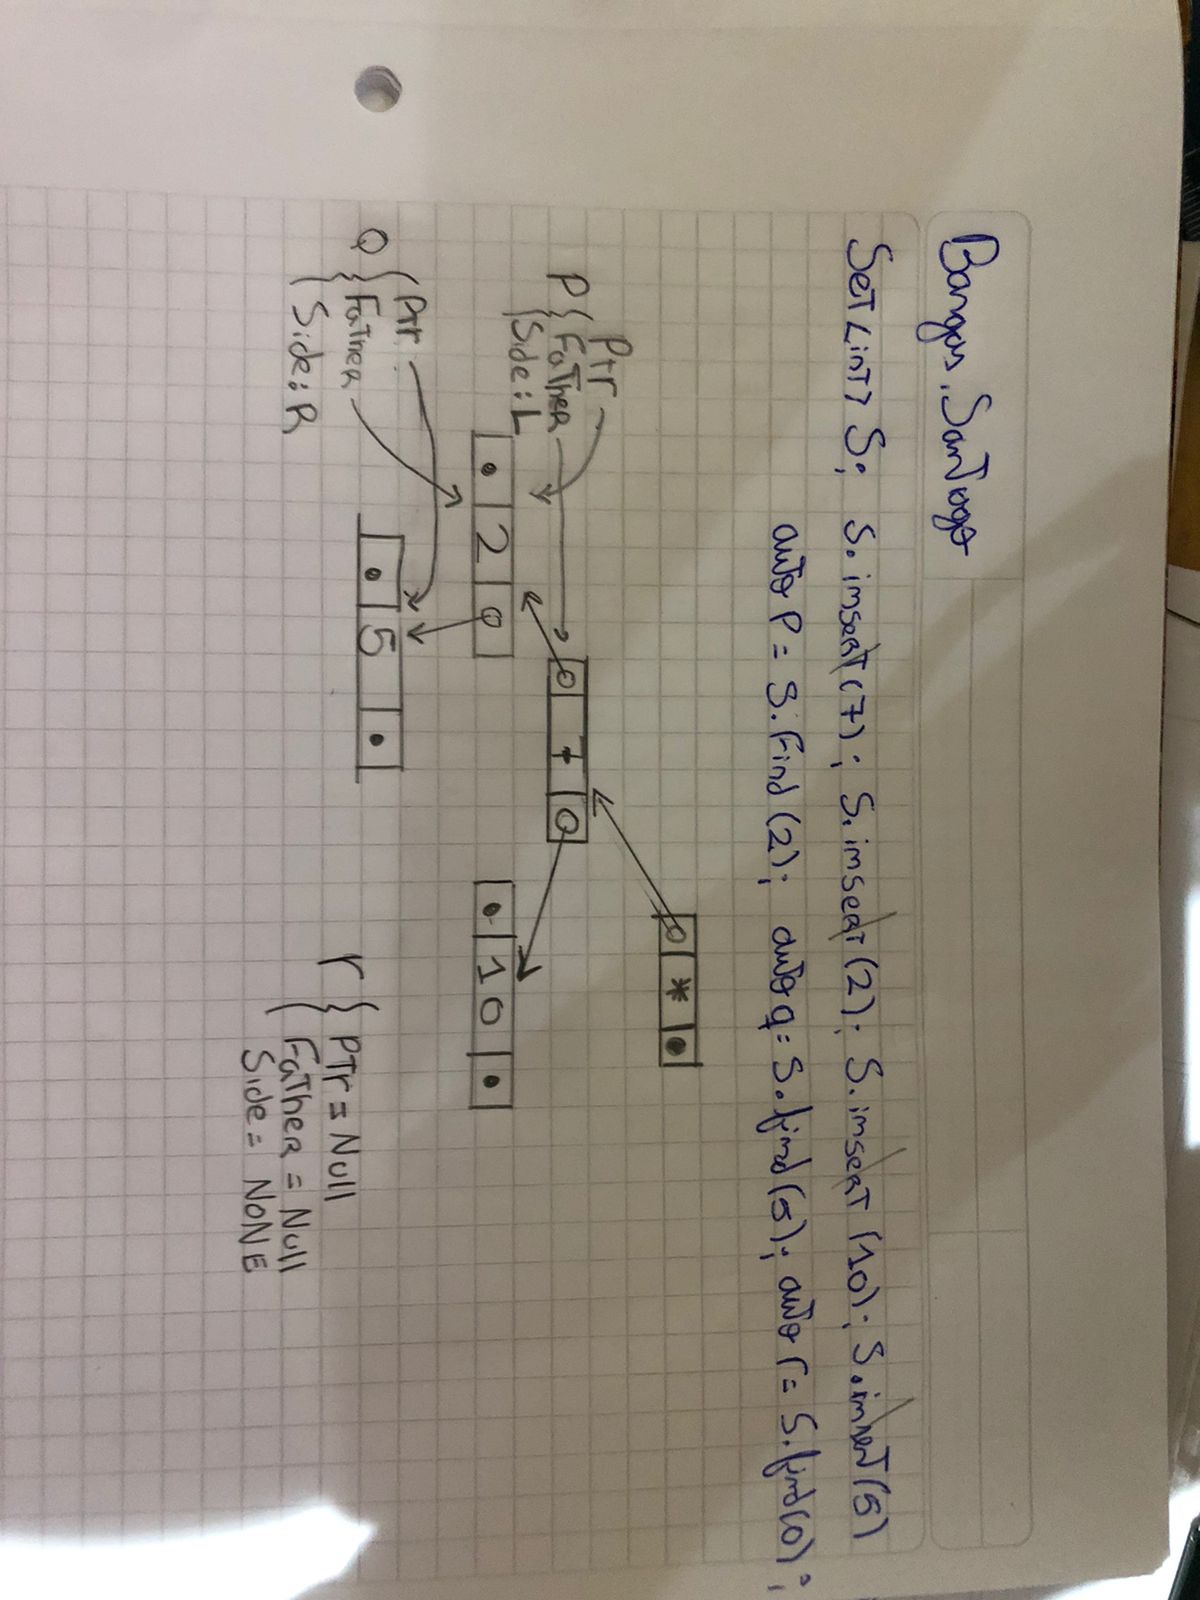 Set<int> S; S.insert(7); S.insert(2); S.insert(10); S.insert(5)
auto P = S.Find(2); auto q = S.find(5); auto r = S.find(0);
*
7
P { Ptr
Father
Side: L
2
10
Q { Ptr
Father
Side: R
5
r { PTr = Null
Father = Null
Side = NONE